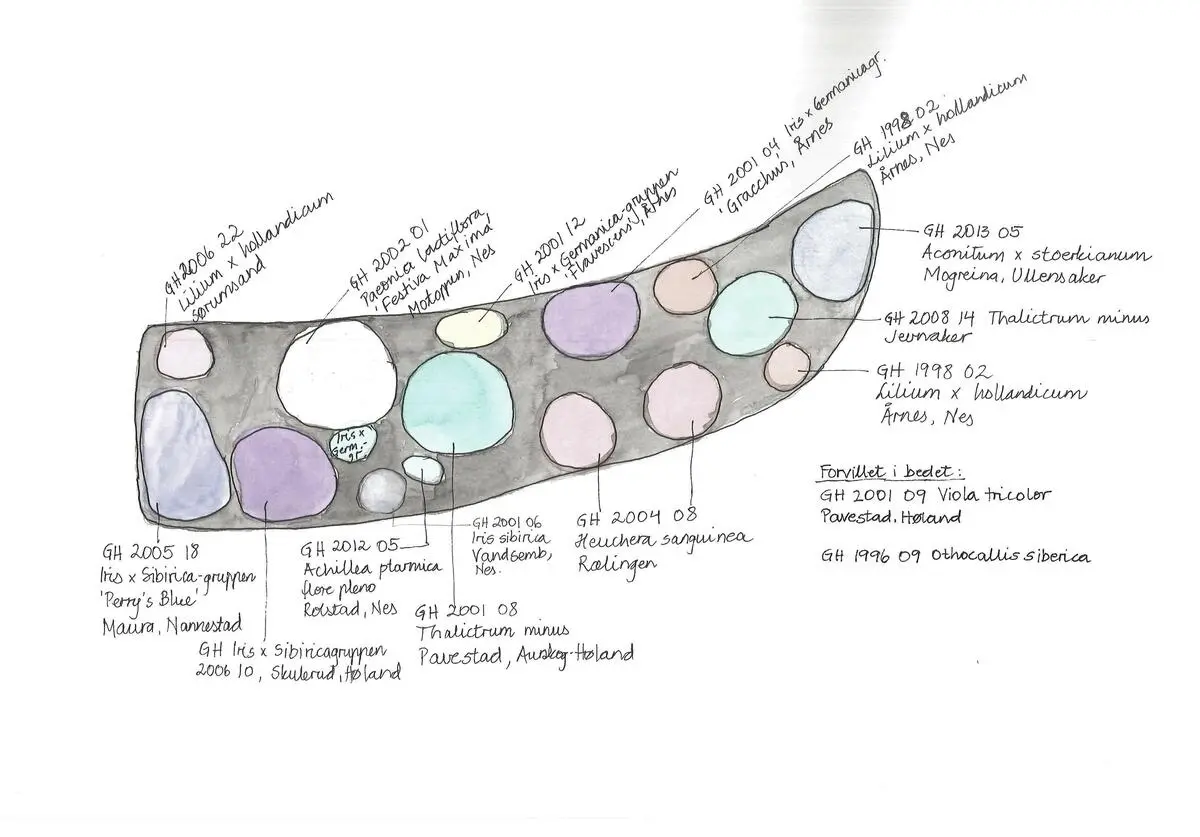 GH 2006 22
Lilium x hollandicum
Sørumsand
GH 2002 01
Paeonia lactiflora,
'Festiva Maxima'
Motoppen, Nes
GH 2001 12
Iris x Germanica-gruppen
'Flavescens', Årnes
GH 2001 04 Iris x Germanicagr.
'Gracchus', Årnes
GH 1998 02
Lilium x hollandicum
Årnes, Nes
GH 2013 05
Aconitum x stoerkianum
Mogreina, Ullensaker
GH 2008 14 Thalictrum minus
Jevnaker
GH 1998 02
Lilium x hollandicum
Årnes, Nes
Iris x
Germ.-
gr.
GH 2005 18
Iris x Sibirica-gruppen
'Perry's Blue'
Maura, Nannestad
GH Iris x Sibiricagruppen
2006 10, Skulerud, Høland
GH 2012 05
Achillea ptarmica
flore pleno
Rolstad, Nes
GH 2001 06
Iris sibirica
Vandsemb,
Nes.
GH 2001 08
Thalictrum minus
Pavestad, Aurskog-Høland
GH 2004 08
Heuchera sanguinea
Rælingen
Forvillet i bedet:
GH 2001 09 Viola tricolor
Pavestad, Høland
GH 1996 09 Othocallis siberica